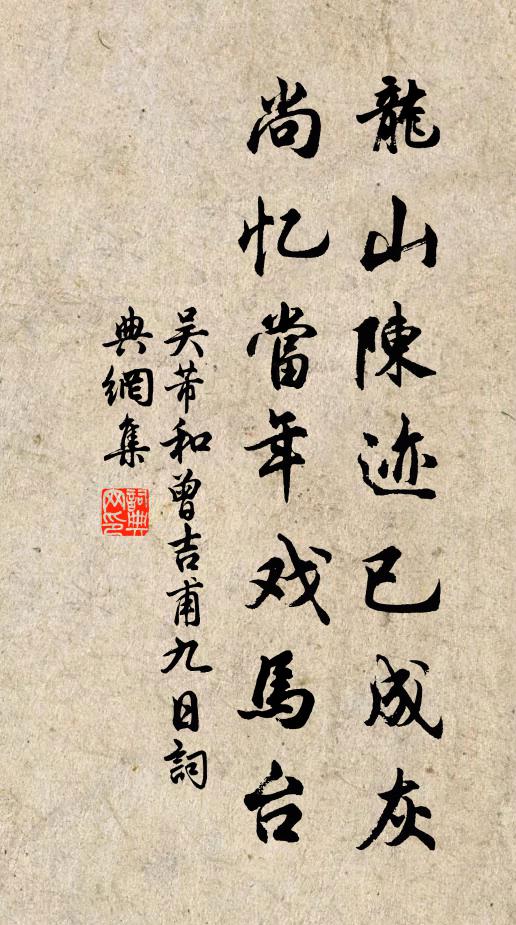 龍山陳迹已成灰
尚忆當年戏馬台
吴芾和曾吉甫九日詞
典網集
詞典網印